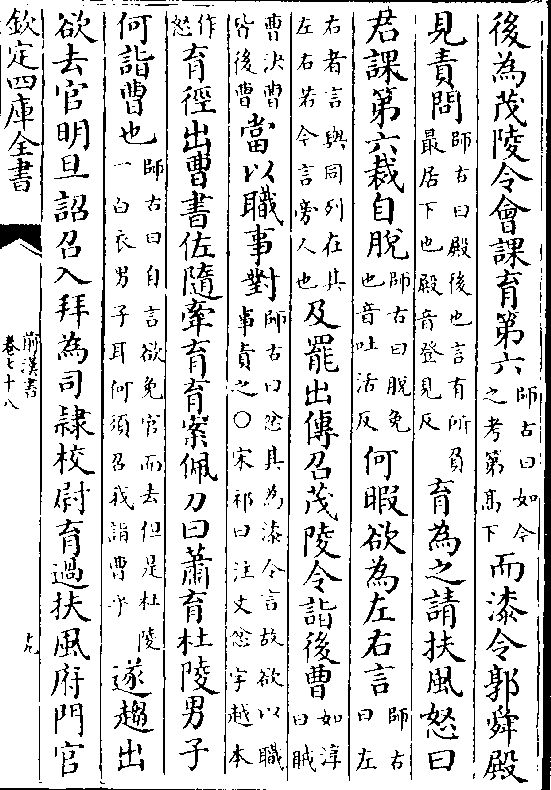 後為茂陵令會課育第六師古曰如今之考第髙下而漆令郭舜殿
見責問師古曰殿後也言有所負最居下也殿音登見反育為之請扶風怒曰
君課第六裁自脫師古曰脫免也音吐活反何暇欲為左右言師古曰左
右者言與同列在其左右若今言旁人也及罷出傳召茂陵令詣後曹如淳曰賊
曹決曹皆後曹當以職事對師古曰忿其為漆令言故欲以職事責之○宋祁曰注文忿字越本
作怒育徑出曹書佐隨牽育育案佩刀曰蕭育杜陵男子
何詣曹也師古曰自言欲免官而去但是杜陵一白衣男子耳何須召我詣曹乎遂趨出
欲去官明旦詔召入拜為司隷校尉育過扶風府門官
欽定四庫全書
前漢書
卷七十八